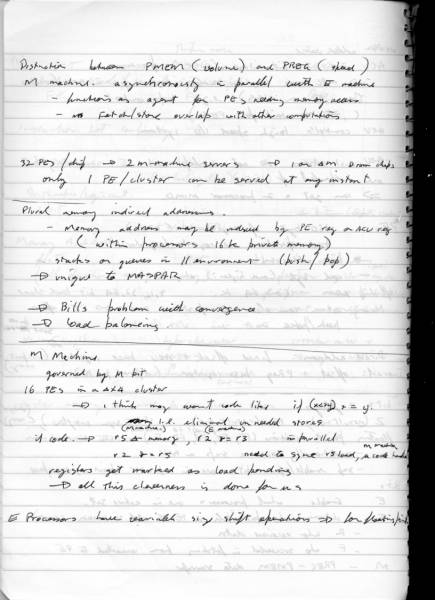 Distinction between PMEM (volume) and PREG (speed)
M machine. asynchronously in parallel with E machine
- functions as agent for PEs needing memory access
- Fetch/store overlap with other computations
32 PEs / chip → 2 m-machine servers → 1 on DRAM chips
only 1 PE/cluster can be served at any instant
Plural memory indirect addressing.
- Memory address may be indexed by PE reg or ACU reg
(within processors 16k private memory)
stacks or queues in // environment (push/pop)
→ unique to MASPAR
→ Bill's problem with convergence
→ load balancing
M Machine
governed by M bit
16 PEs in a 4x4 cluster
→ I think may want code like if (x<y) x = y.
i.e. eliminat un needed stores
(M machine) (E machine)
if code. → r5 ← memory, r2 = r3 in parallel
m machine
r2 r = r5 need to sync r5 load,
registers get marked as load pending
→ all this cleverness is done for us
E Processors have variable size shift operations → for floating point